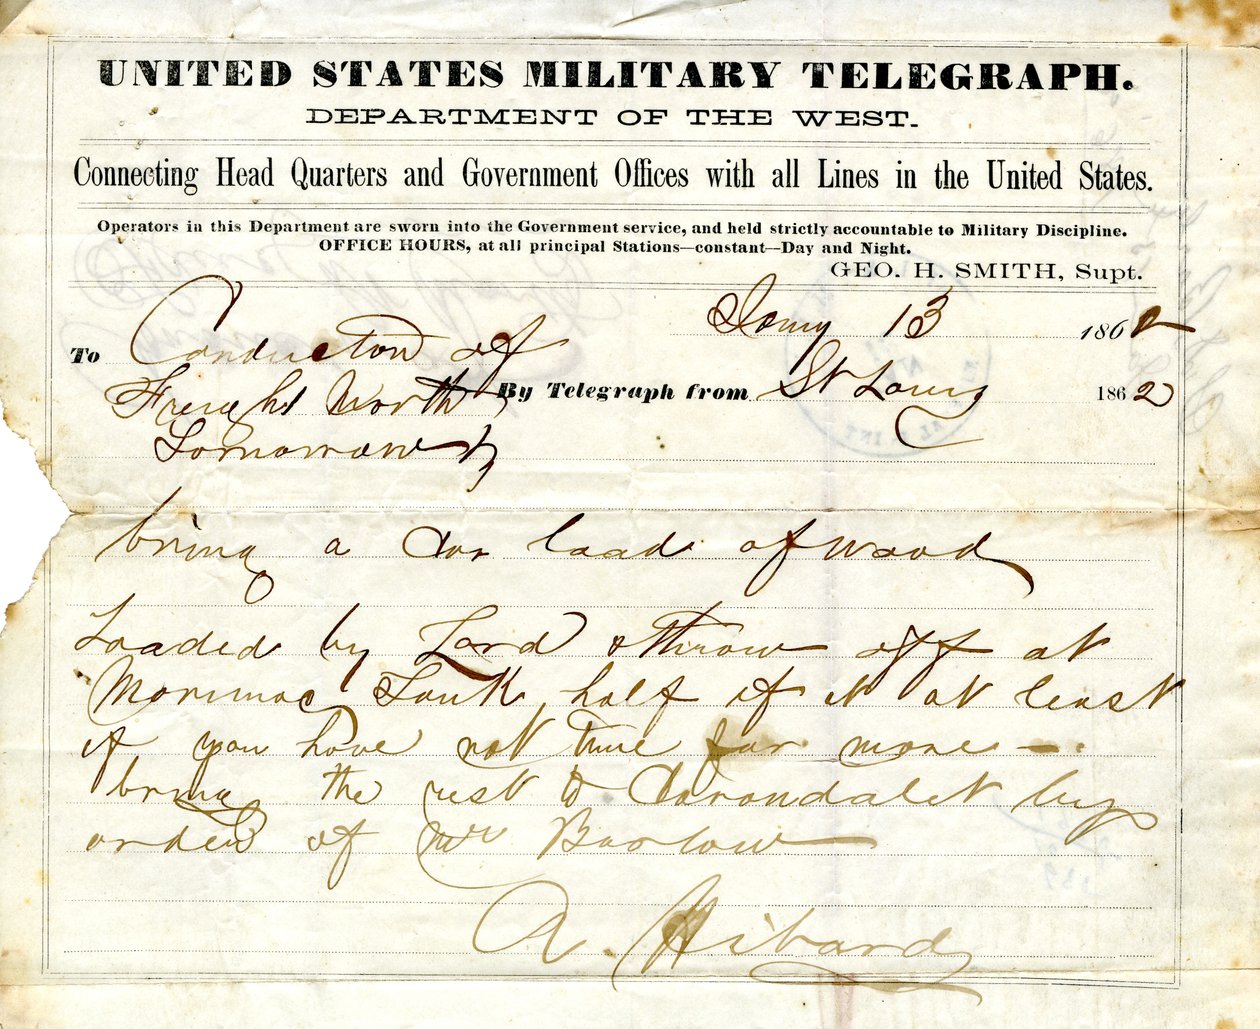 UNITED STATES MILITARY TELEGRAPH.
DEPARTMENT OF THE WEST.
Connecting Head Quarters and Government Offices with all Lines in the United States.
Operators in this Department are sworn into the Government service, and held strictly accountable to Military Discipline.
OFFICE HOURS, at all principal Stations—constant—Day and Night.
GEO. H. SMITH, Supt.
Jany 13 1862
To Conductor of
Freight North By Telegraph from St Louis 1862
Tomorrow
bring a Car load of wood
Loaded by Lord & throw off at
Morimac Tank half of it at least
if you have not time for more —
bring the rest to Carondalet by
order of Mr Barlow
A. Hibard